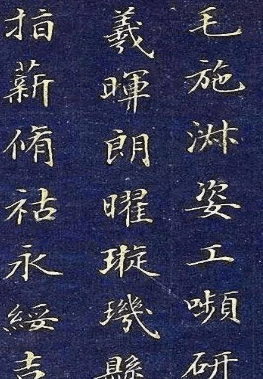 毛施淑姿工嚬研
羲暉朗曜璇璣縣
指薪脩祜永綏吉